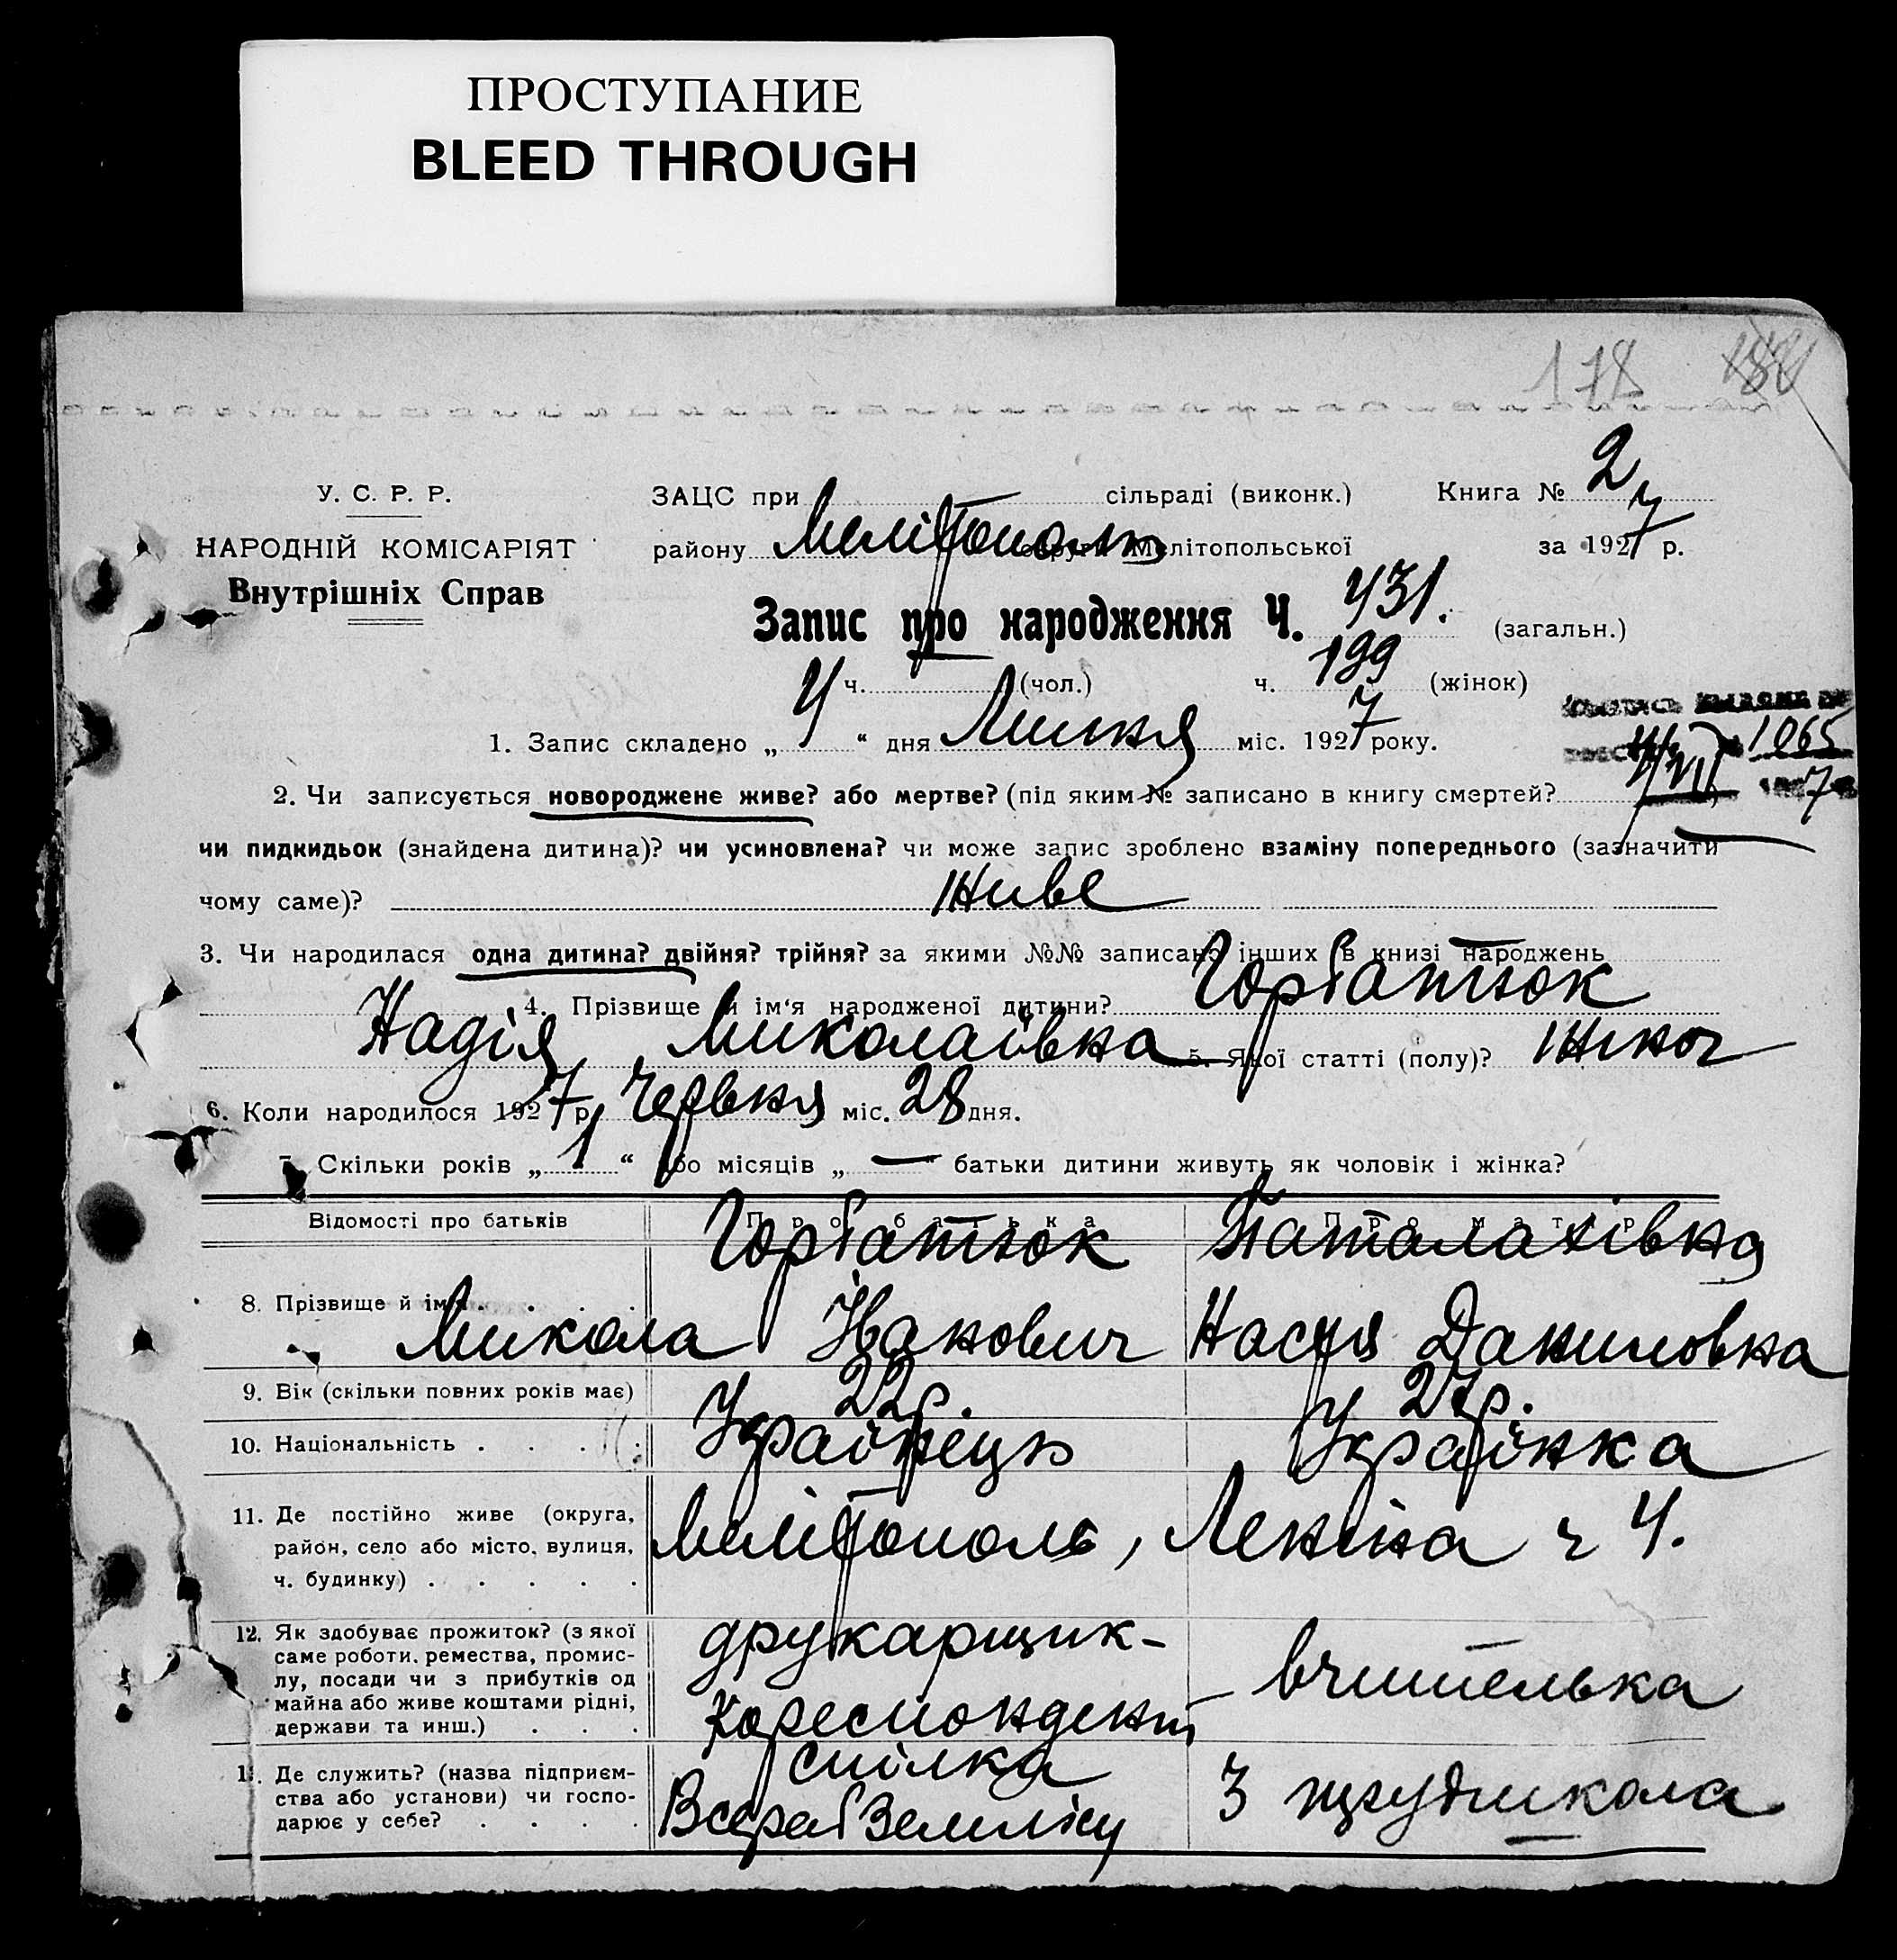 ПРОСТУПАНИЕ
BLEED THROUGH
178
У. С. Р. Р.
НАРОДНІЙ КОМІСАРІЯТ
Внутрішніх Справ
ЗАЦС при сільраді (виконк.) Книга № 2
району Мелітополь округи Мелітопольської за 1927 р.
Запис про народження Ч. 431. (загальн.)
ч. (чол.) ч. 199 (жінок)
1. Запис складено „ 4 “ дня Липня міс. 1927 року.
1065
2. Чи записується новороджене живе? або мертве? (під яким № записано в книгу смертей?
чи пидкидьок (знайдена дитина)? чи усиновлена? чи може запис зроблено взаміну попереднього (зазначити
чому саме)? Живе
3. Чи народилася одна дитина? двійня? трійня? за якими №№ записано інших в книзі народжень
4. Прізвище й ім‘я народженої дитини? Горбатюк
Надія Миколаївна 5. Якої статті (полу)? жіноч
6. Коли народилося 1927 р. Червня міс. 28 дня.
7. Скільки років „ 1 “ або місяців „ — “ батьки дитини живуть як чоловік і жінка?
Відомості про батьків Про батька Про матір
8. Прізвище й ім‘я . . . . Горбатюк Микола Іванович Паталахівна Настя Даниловна
9. Вік (скільки повних років має) 22р. 27р.
10. Національність . . . . Українець Українка
11. Де постійно живе (округа,
район, село або місто, вулиця,
ч. будинку) . . . . .
Мелітополь, Леніна ч 4.
12. Як здобуває прожиток? (з якої
саме роботи, ремества, промис-
лу, посади чи з прибутків од
майна або живе коштами рідні,
держави та инш.) . . .
друкарщик-
кореспондент
вчителька
13. Де служить? (назва підприєм-
ства або установи) чи госпо-
дарює у себе? . . . .
спілка
ВсерабЗемлісу
3 трудшкола